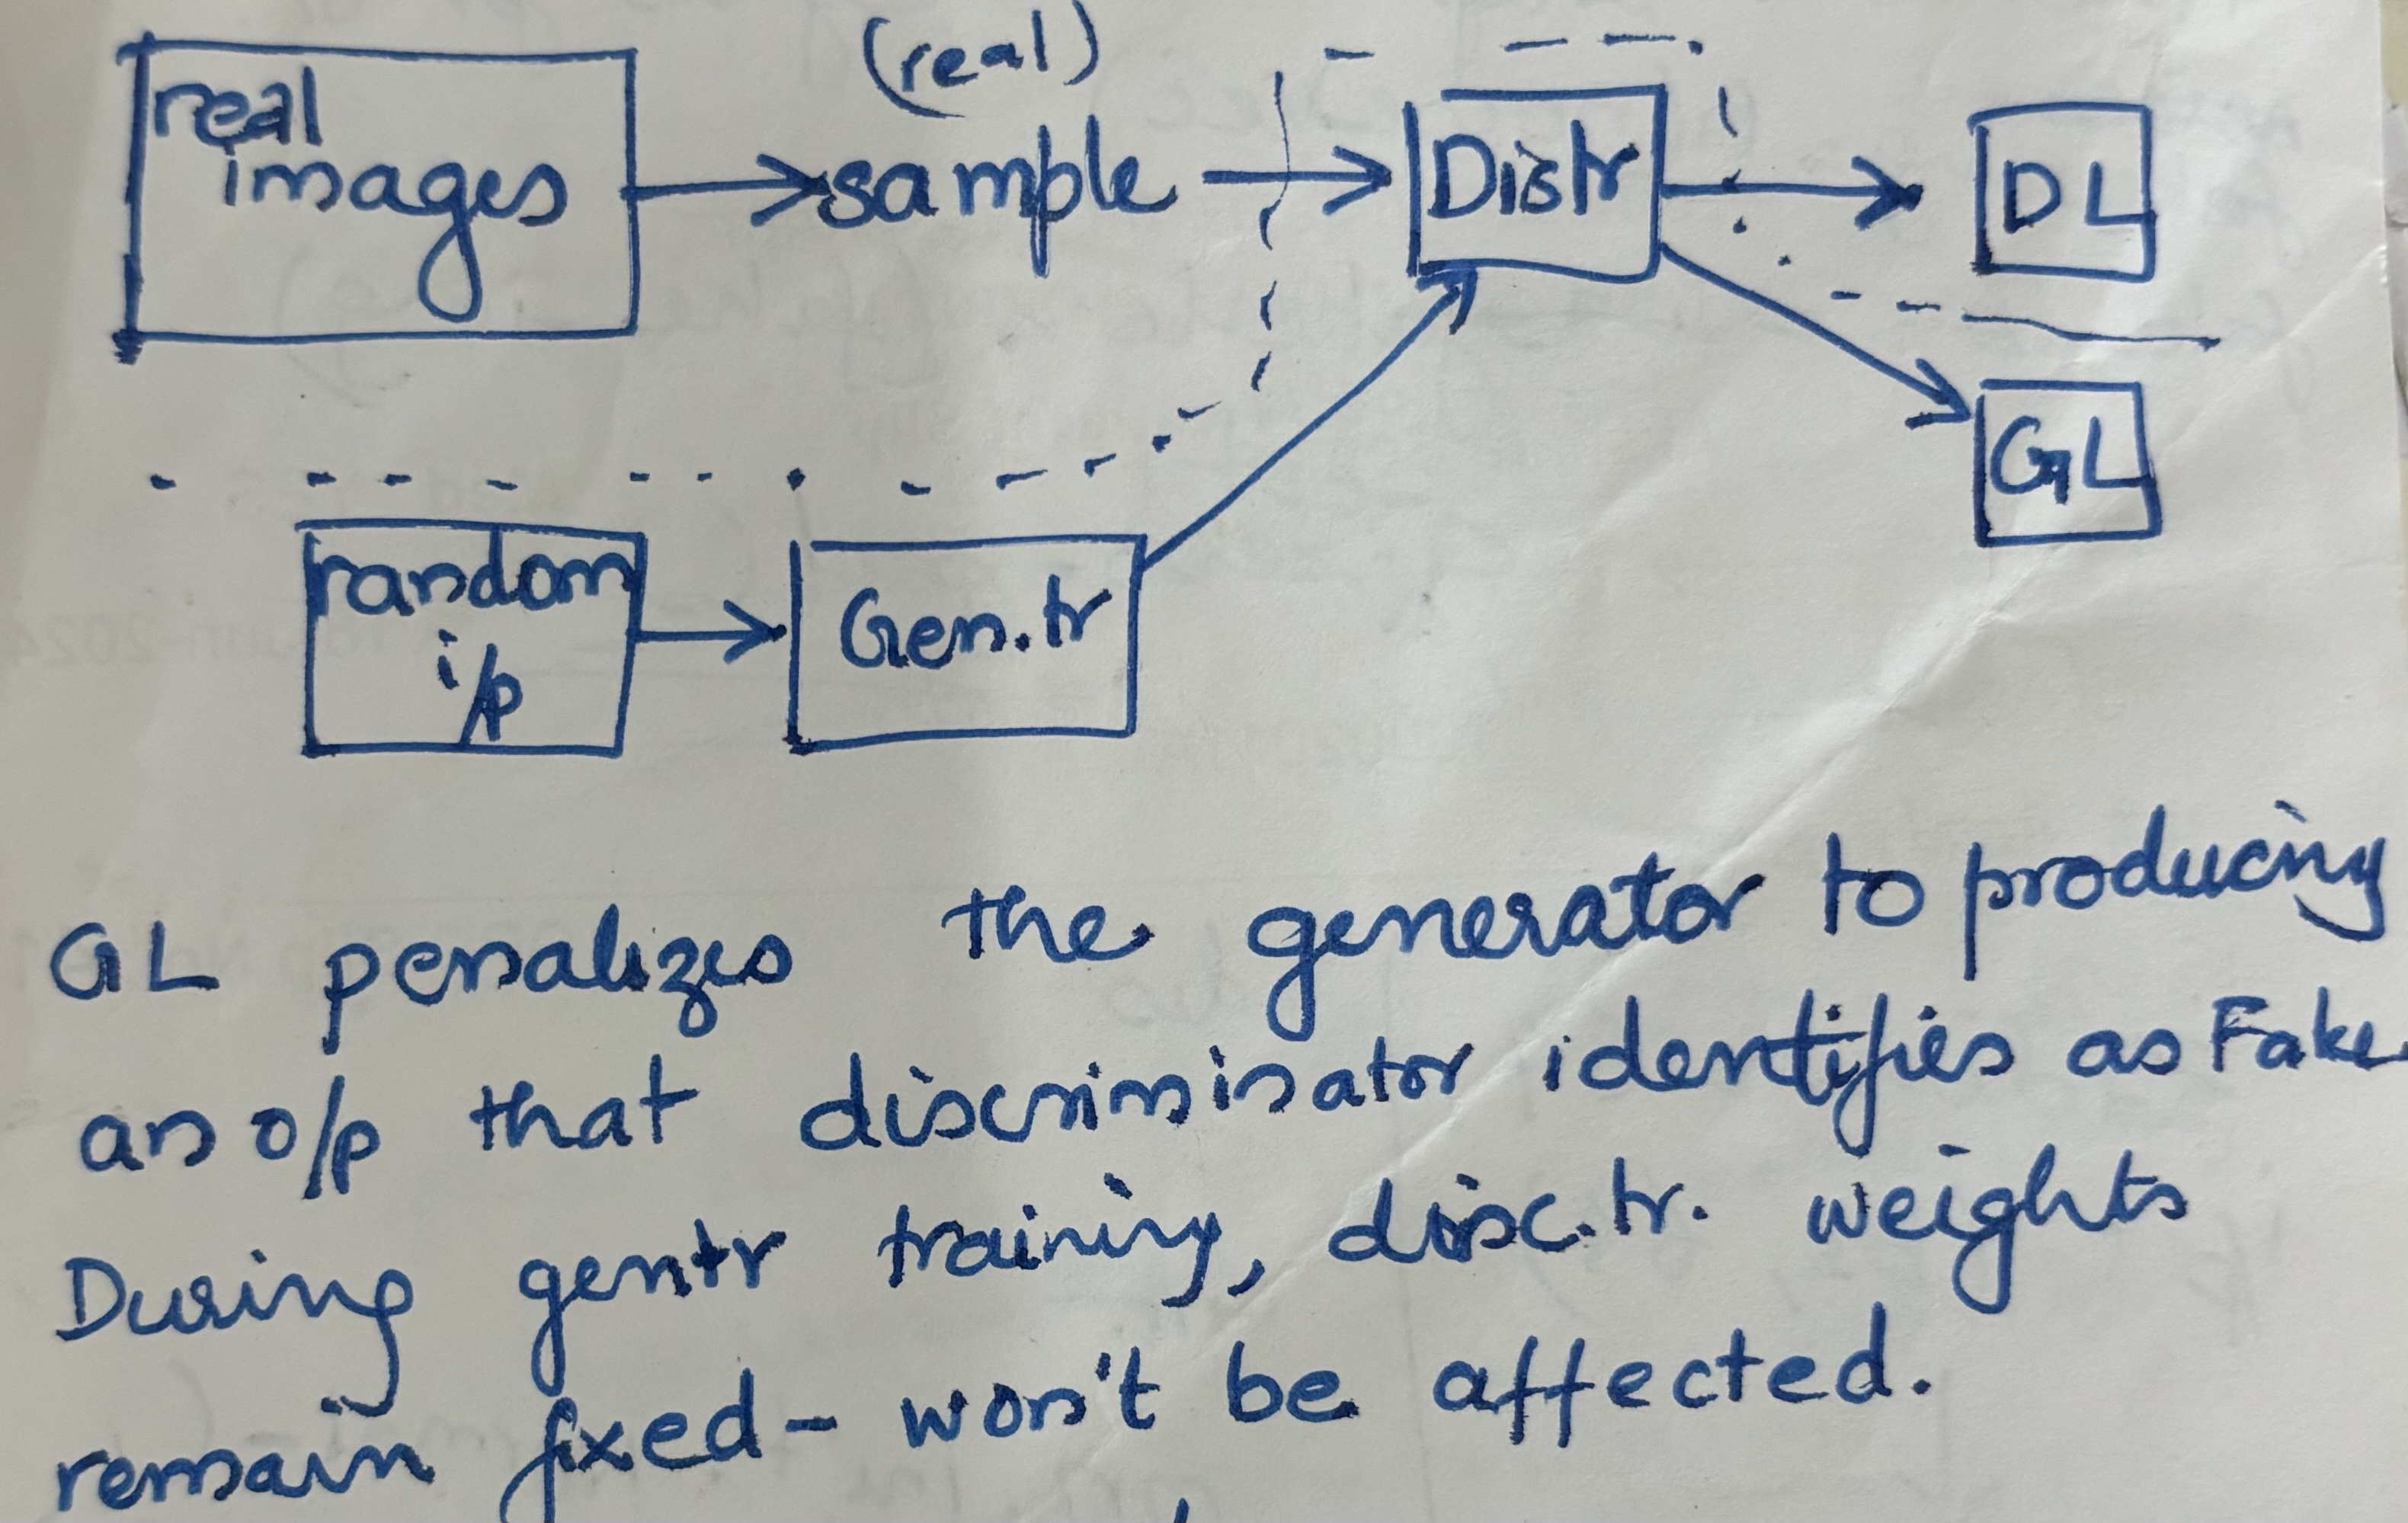 (real)
real
images
sample
Distr
DL
GL
random
i/p
Gen.tr
GL penalizes the generator to producing
an o/p that discriminator identifies as Fake
During gentr training, disc.tr. weights
remain fixed - won't be affected.